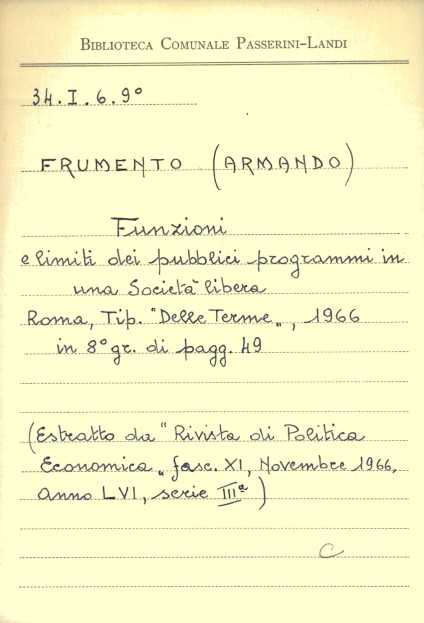 BIBLIOTECA COMUNALE PASSERINI-LANDI
34.I.6.9°
FRUMENTO (ARMANDO)
Funzioni
e limiti dei pubblici programmi in
una Società libera
Roma, Tip. "Delle Terme„, 1966
in 8° gr. di pagg. 49
(Estratto da "Rivista di Politica
Economica„ fasc. XI, Novembre 1966,
anno LVI, serie IIIª)
C